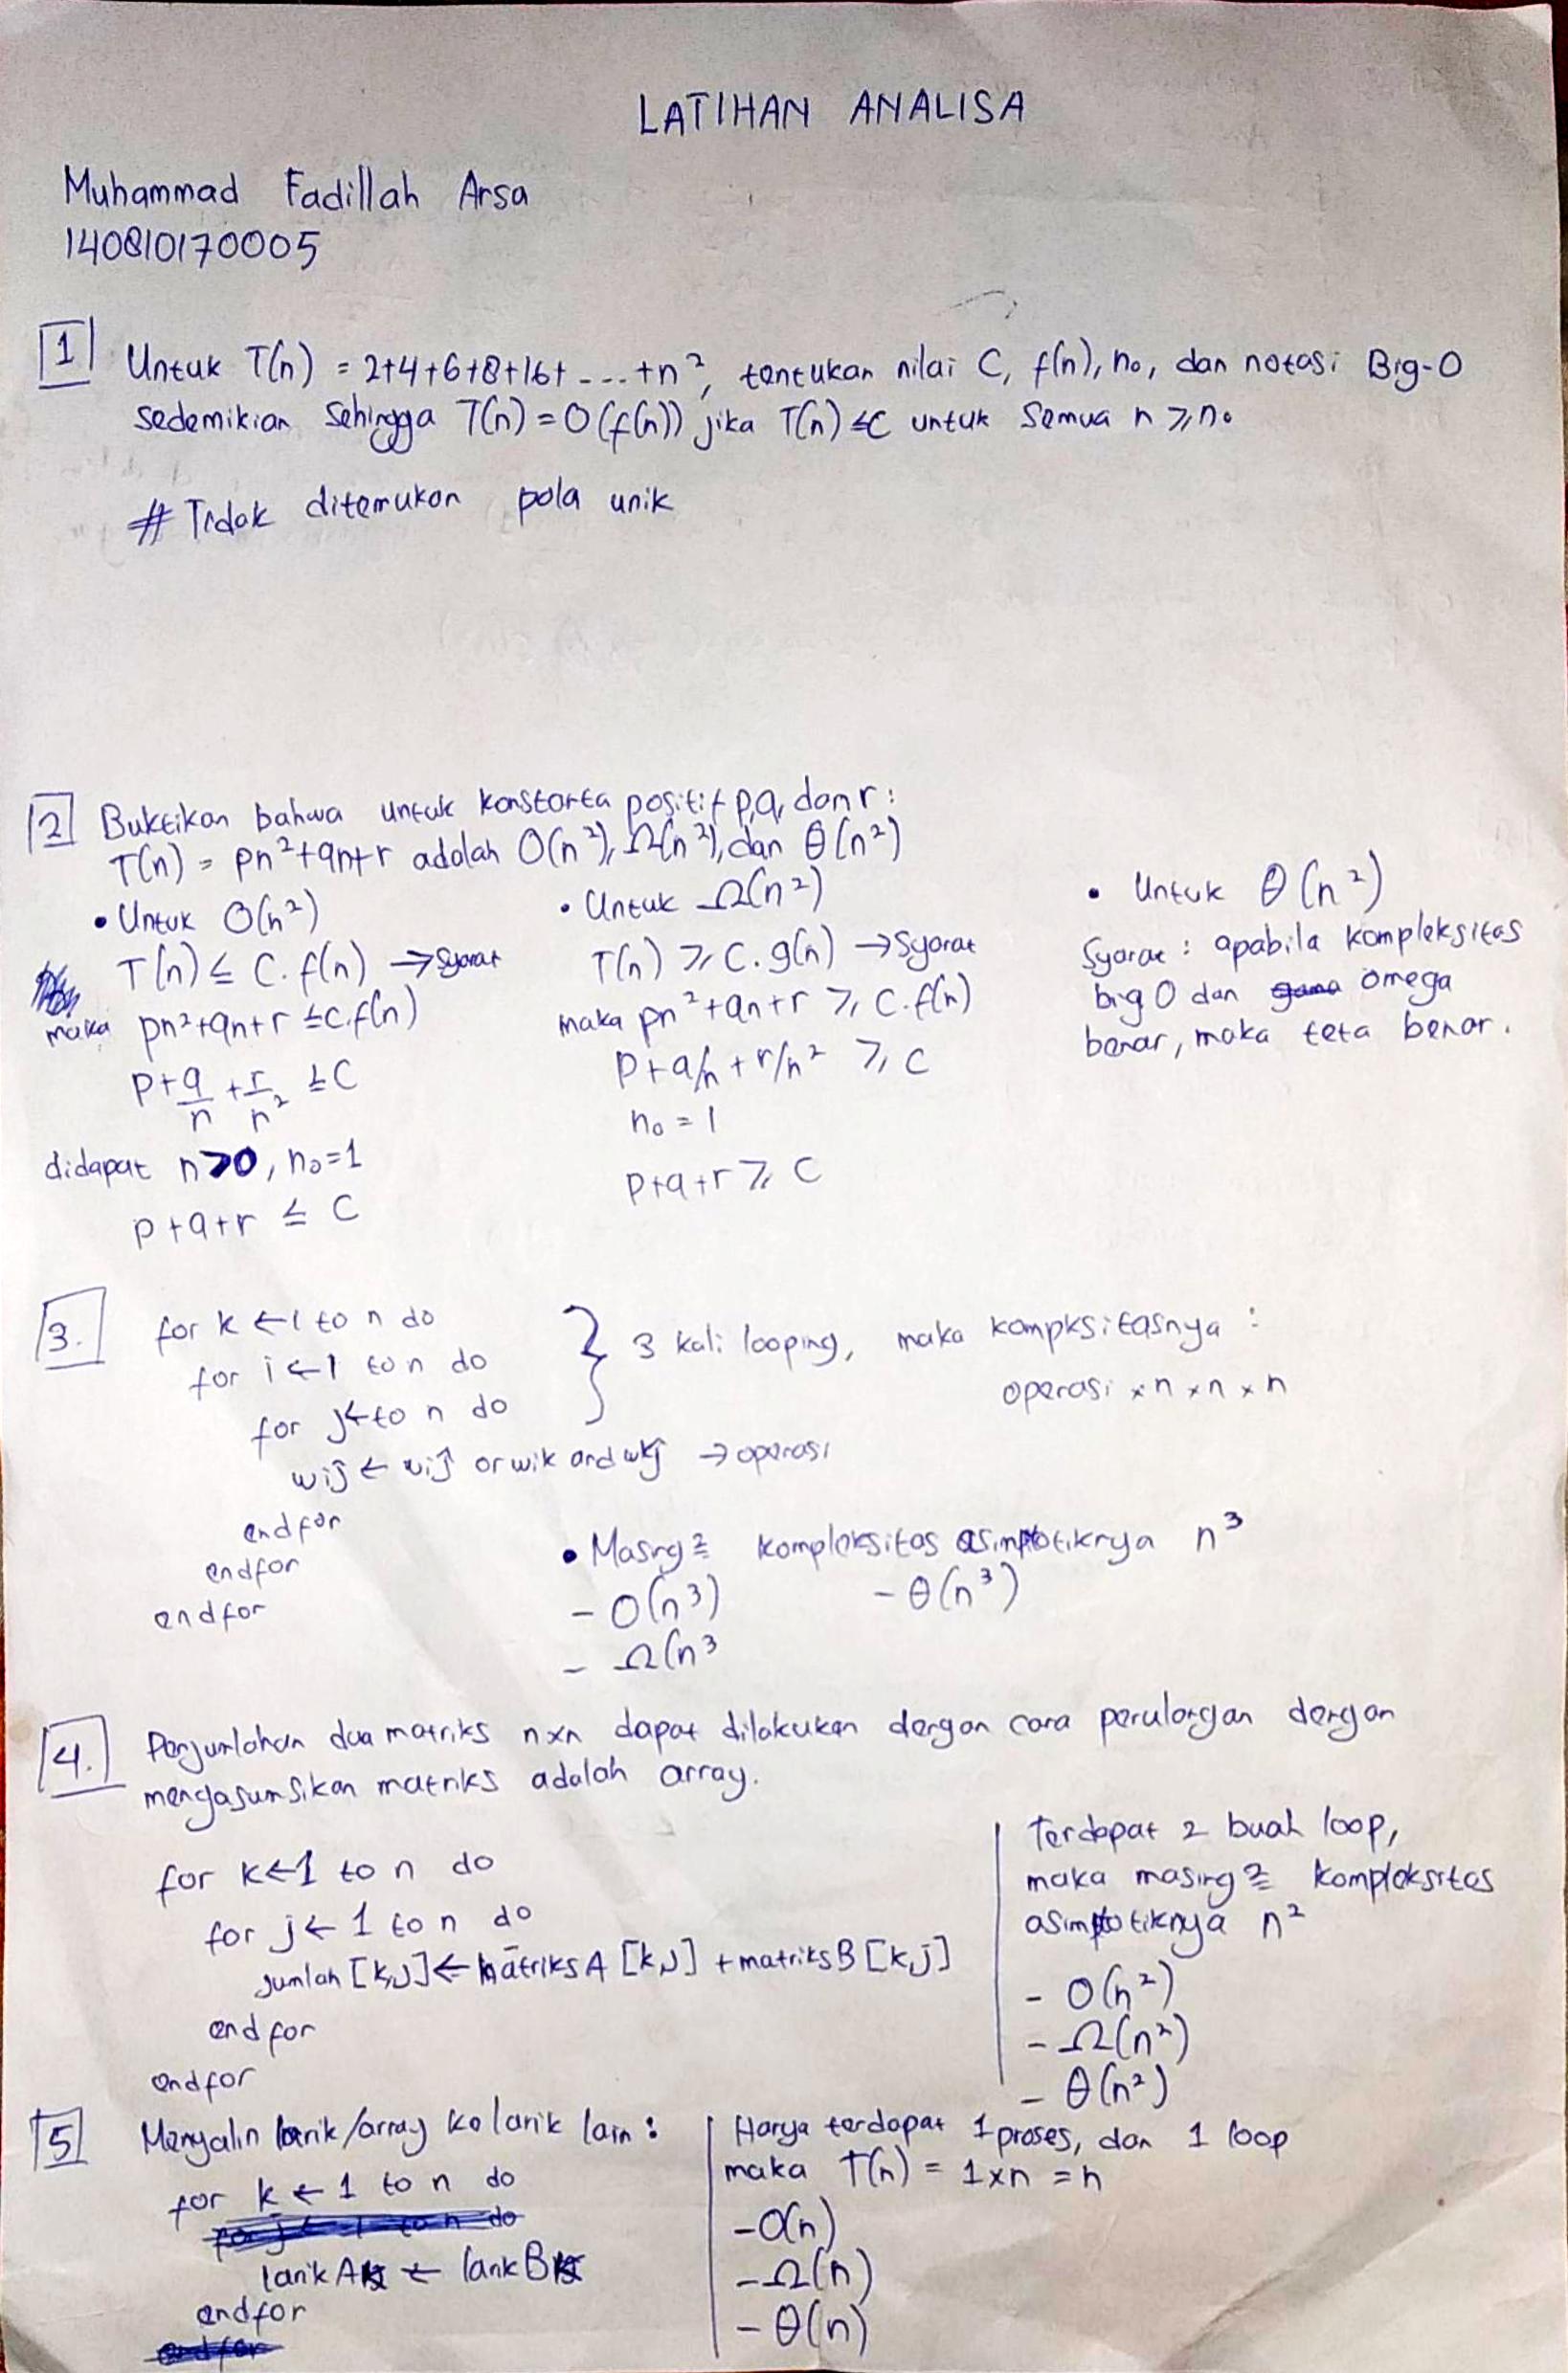 LATIHAN ANALISA
Muhammad Fadillah Arsa
140810170005
1 Untuk T(n) = 2+4+6+8+16+ ....+n², tentukan nilai C, f(n), n₀, dan notasi Big-O
sedemikian sehingga T(n) = O(f(n)) jika T(n) ≤C untuk semua n ≥ n₀
# Tidak ditemukan pola unik
2 Buktikan bahwa untuk konstanta positif p,q, dan r :
T(n) = pn²+qn+r adalah O(n²), Ω(n²), dan θ(n²)
• Untuk O(n²)
T(n) ≤ C. f(n) → Syarat
maka pn²+qn+r ≤ C.f(n)
p+q/n + r/n² ≤ C
didapat n>0, n₀=1
p+q+r ≤ C
• Untuk Ω(n²)
T(n) ≥ C. g(n) → Syarat
maka pn²+qn+r ≥ C.f(n)
p+q/n + r/n² ≥ C
n₀ = 1
p+q+r ≥ C
• Untuk θ(n²)
Syarat : apabila kompleksitas
big O dan omega
benar, maka teta benar.
3. for k ← 1 to n do
for i ← 1 to n do
for j ← to n do
wij ← wij or wik and wkj → operasi
endfor
endfor
endfor
} 3 kali looping, maka kompksitasnya :
operasi × n × n × n
• Masng2 kompleksitas asimptotiknya n³
- O(n³) - θ(n³)
- Ω(n³
4. Penjumlahan dua matriks nxn dapat dilakukan dengan cara perulangan dengan
mengasumsikan matriks adalah array.
for k←1 to n do
for j ← 1 to n do
jumlah [k,j] ← matriks A [k,j] + matriks B [k,j]
end for
endfor
Terdapat 2 buah loop,
maka masing2 kompleksitas
asimptotiknya n²
- O(n²)
- Ω(n²)
- θ(n²)
5 Menyalin larik/array ke larik lain :
for k ← 1 to n do
larik A ← larik B
endfor
Hanya terdapat 1 proses, dan 1 loop
maka T(n) = 1xn = n
- O(n)
- Ω(n)
- θ(n)